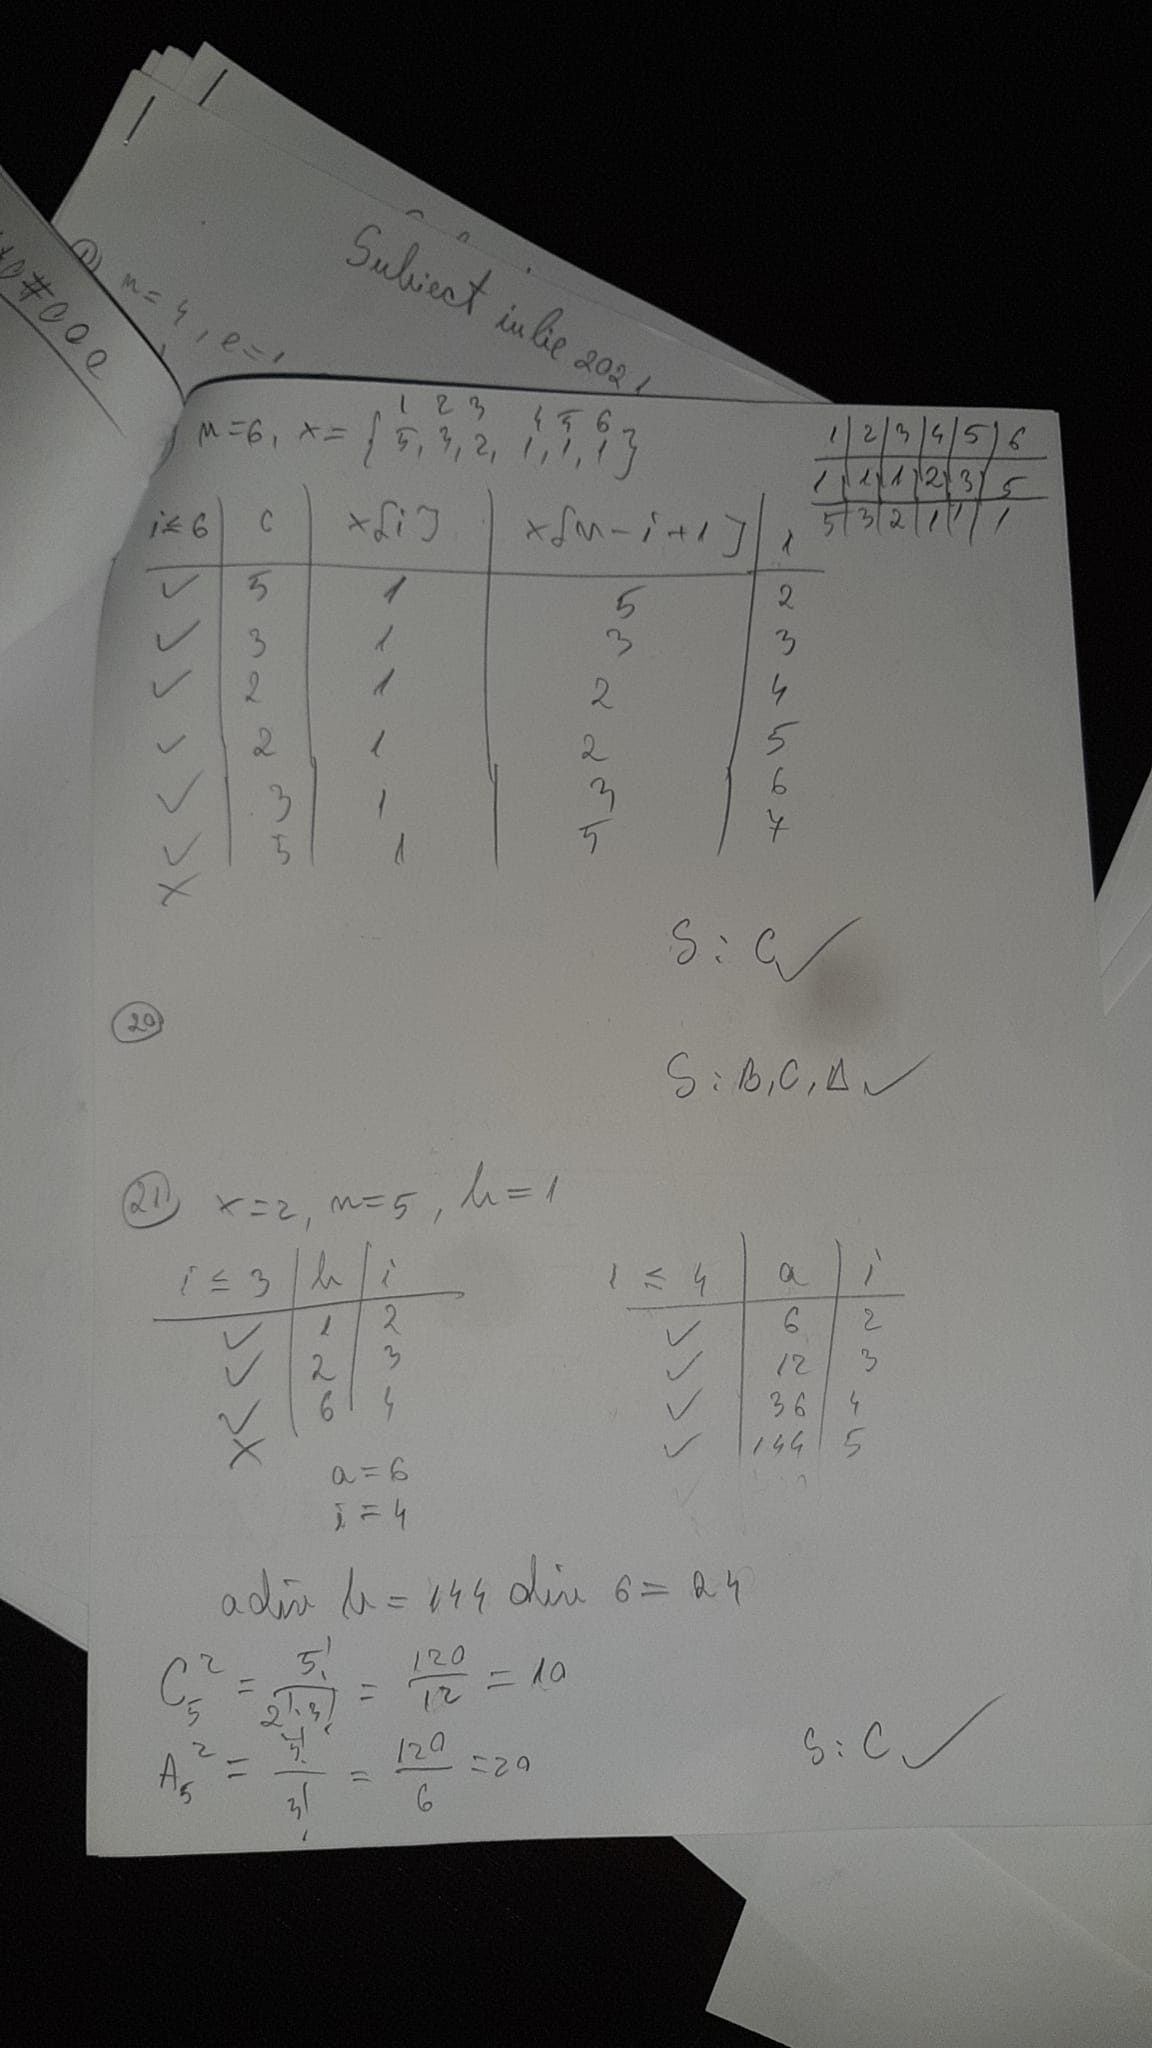 #000
1) n=4, e=1
Subiect iulie 2021
n=6, x={5, 3, 2, 1, 1, 1}
1 2 3 4 5 6
1 | 2 | 3 | 4 | 5 | 6
1 | 1 | 1 | 2 | 3 | 5
5 | 3 | 2 | 1 | 1 | 1
i≤6 | c | x[i] | x[n-i+1] | i
✓ | 5 | 1 | 5 | 2
✓ | 3 | 1 | 3 | 3
✓ | 2 | 1 | 2 | 4
✓ | 2 | 1 | 2 | 5
✓ | 3 | 1 | 3 | 6
✓ | 5 | 1 | 5 | 7
X
S: C ✓
20
S: B, C, D ✓
21) x=2, n=5, b=1
i ≤ 3 | b | i
✓ | 1 | 2
✓ | 2 | 3
✓ | 6 | 4
X
a=6
i=4
i ≤ 4 | a | i
✓ | 6 | 2
✓ | 12 | 3
✓ | 36 | 4
✓ | 144 | 5
a div b = 144 div 6 = 24
C₅² = 5!/(2!·3!) = 120/12 = 10
A₅² = 5!/3! = 120/6 = 20
S: C ✓